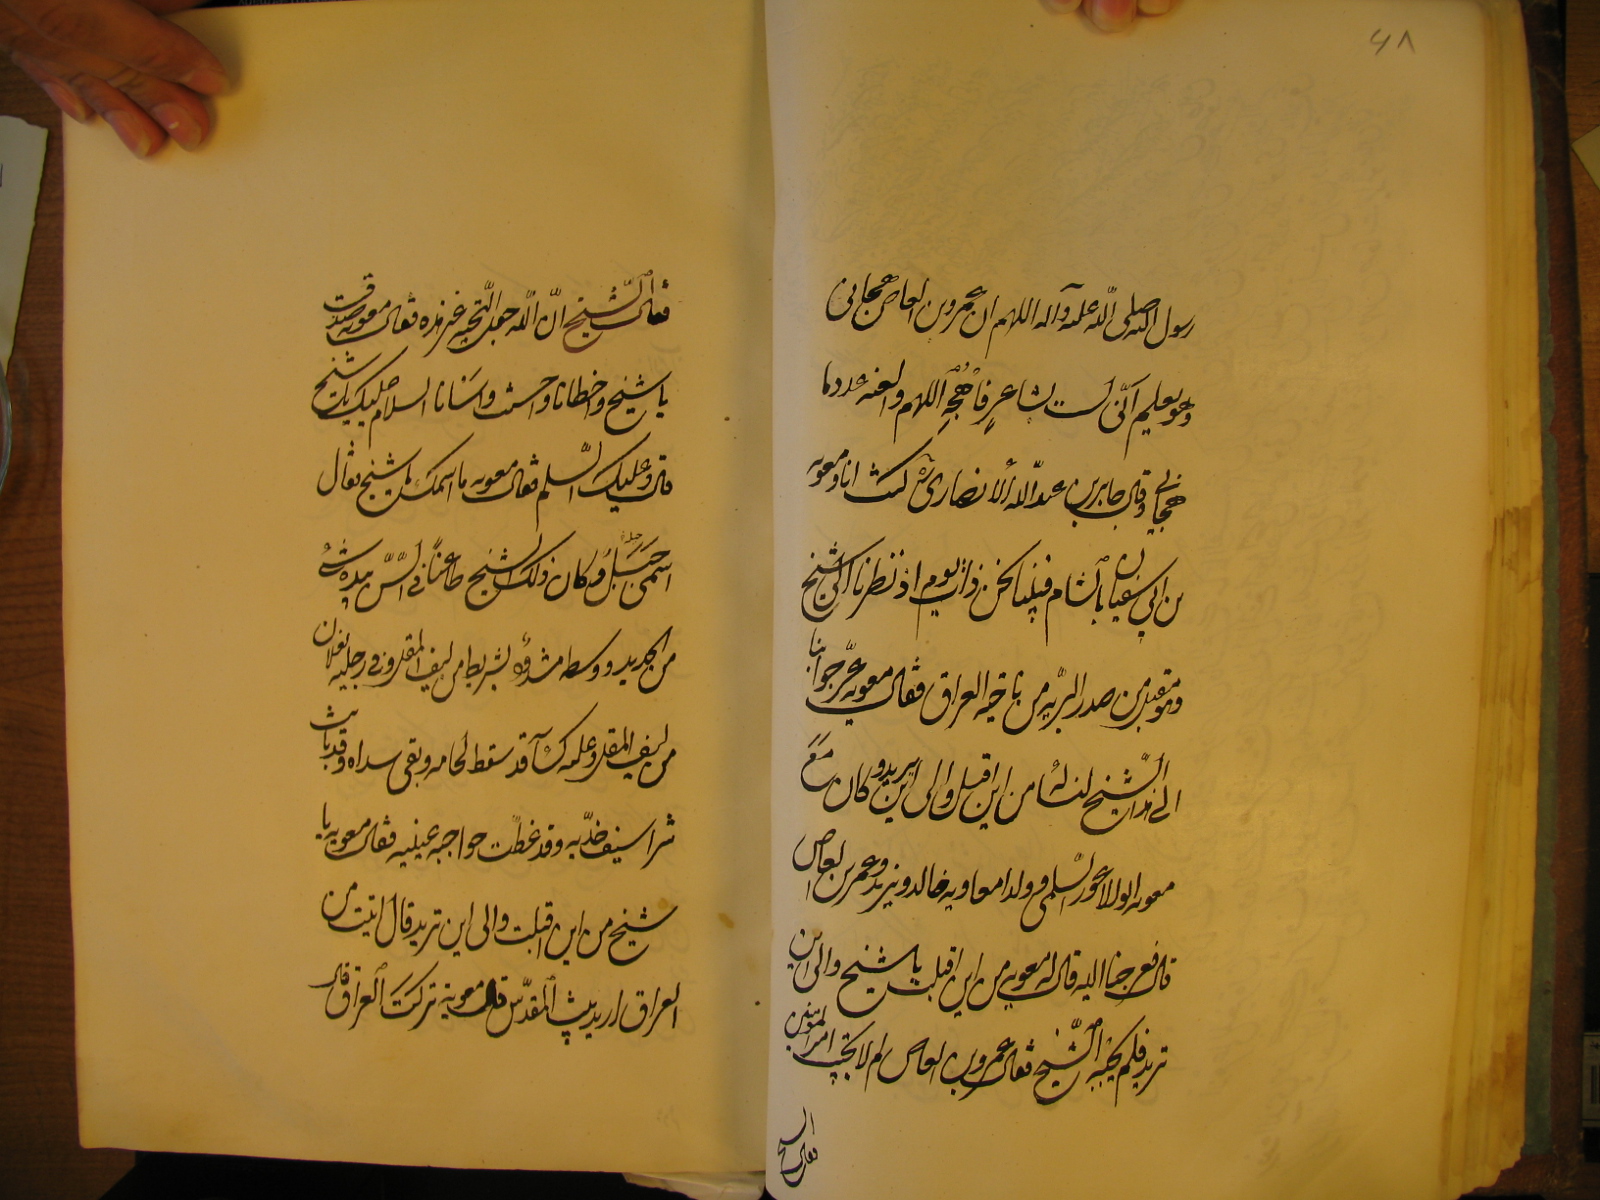 ۶۸
رسول الله صلى الله عليه وآله اللهم ان عمرو بن العاص هجانى
وهو يعلم انّى لست بشاعر فاهجه اللهم والعنه عدد ما
هجانى وقال جابر بن عبد الله الانصارى كنت انا ومعويه
بن ابى سفيان بالشام فبينا نحن ذات يوم اذ نظرنا الى شيخ
وهو مقبل من صدر البريه من ناحيه العراق فقال معويه عرّجوا بنا
الى هذا الشيخ لنسئله من اين اقبل والى اين يريد وكان مع
معويه ابو الاعور السلمى وولدا معاويه خالد ويزيد وعمرو بن العاص
قال فعرجنا اليه فقال له معويه من اين اقبلت يا شيخ والى اين
تريد فلم يجبه الشيخ فقال عمرو بن العاص لم لا تجيب امير المومنين
فقال الشيخ
فقال الشيخ انّ الله جعل التحيه غير هذه فقال معويه صدقت
يا شيخ واخطانا واحسنت واسانا السلام عليك يا شيخ
قال وعليك السلم فقال معويه ما اسمك يا شيخ فقال
اسمى جبل وكان ذلك الشيخ طاعنا فى السّن بيده شئ
من الحديد ووسطه مشدود بشريط من ليف المقل وفى رجليه نعلان
من ليف المقل وعليه كسآء قد سقط لحامه وبقى سداه وقد بانت
شراسيف خدّيه وقد غطّت حواجبه عينيه فقال معويه يا
شيخ من اين اقبلت والى اين تريد قال اتيت من
العراق اريد بيت المقدّس قال معويه تركت العراق قال